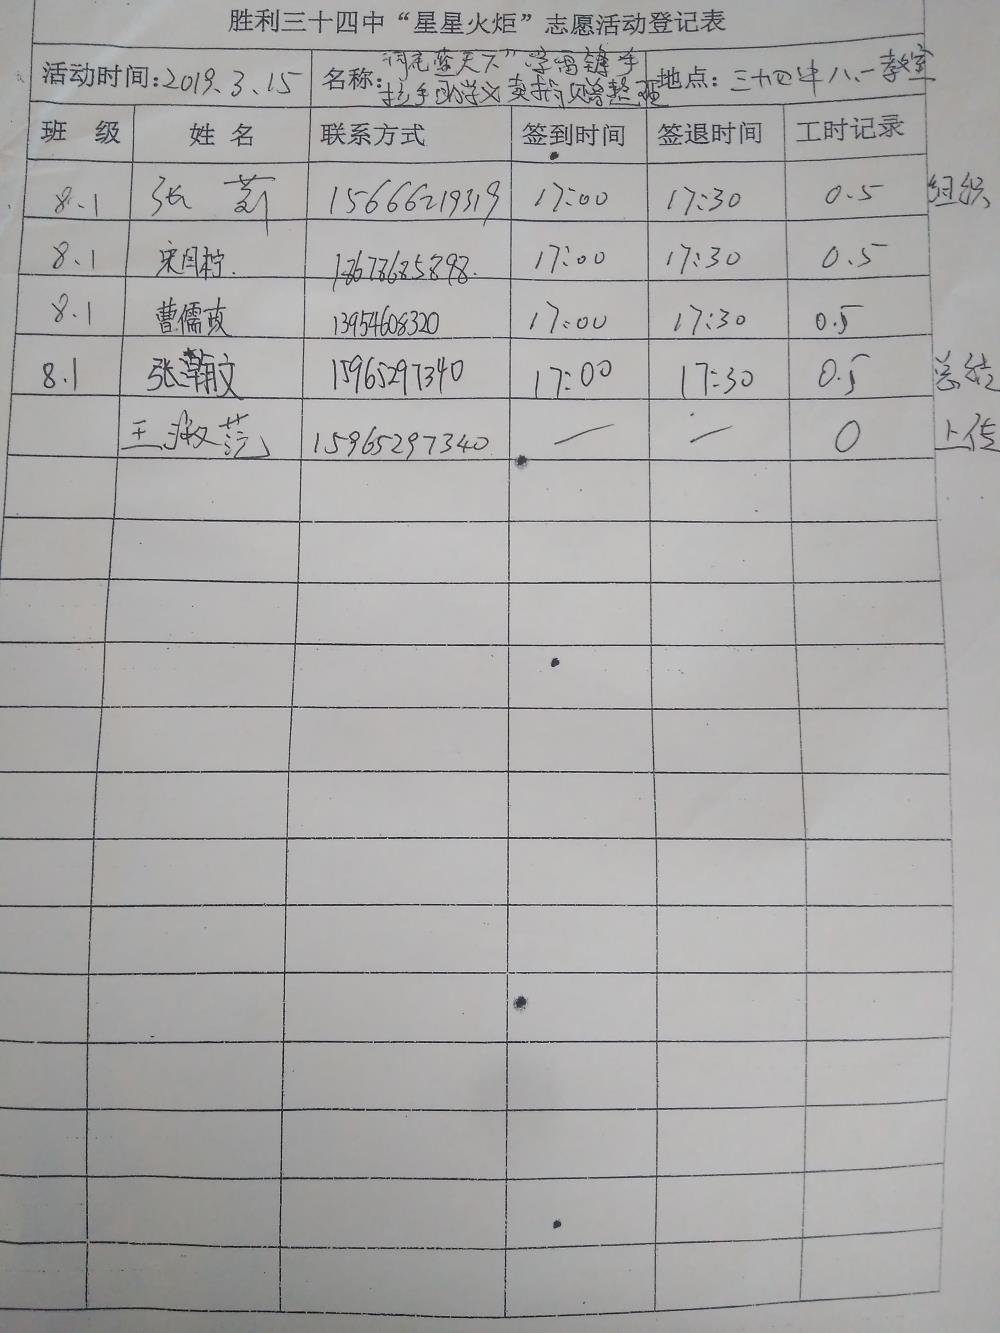 胜利三十四中“星星火炬”志愿活动登记表
活动时间:2019.3.15 名称:“同在蓝天下”学雷锋手拉手助学义卖捐赠整理 地点:三十四中八.一教室
班 级 姓 名 联系方式 签到时间 签退时间 工时记录
8.1 张 15666219319 17:00 17:30 0.5 组织
8.1 宋 18678685898. 17:00 17:30 0.5
8.1 曹儒政 13954608320 17:00 17:30 0.5
8.1 张瀚文 15965297340 17:00 17:30 0.5 总结
王淑范 15965297340 — — 0 上传